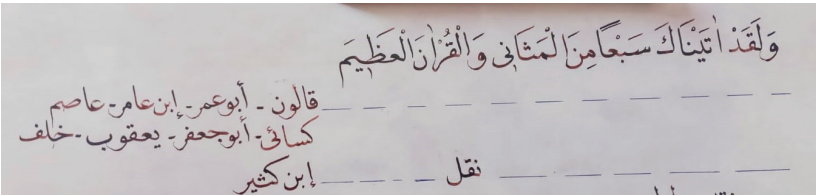 وَلَقَدْ اٰتَيْنَاكَ سَبْعًا مِنَ الْمَثَانِى وَالْقُرْاٰنَ الْعَظِيمَ
قالون - أبوعمر - إبن عامر - عاصم
كسائى - أبوجعفر - يعقوب - خلف
نقل إبن كثير